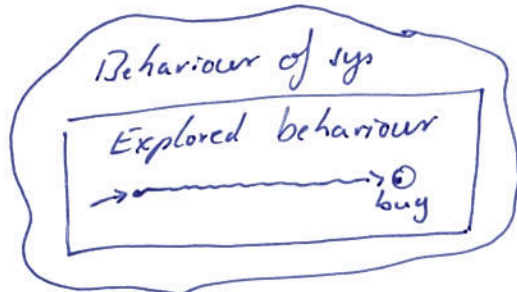 Behaviour of sys
Explored behaviour
bug